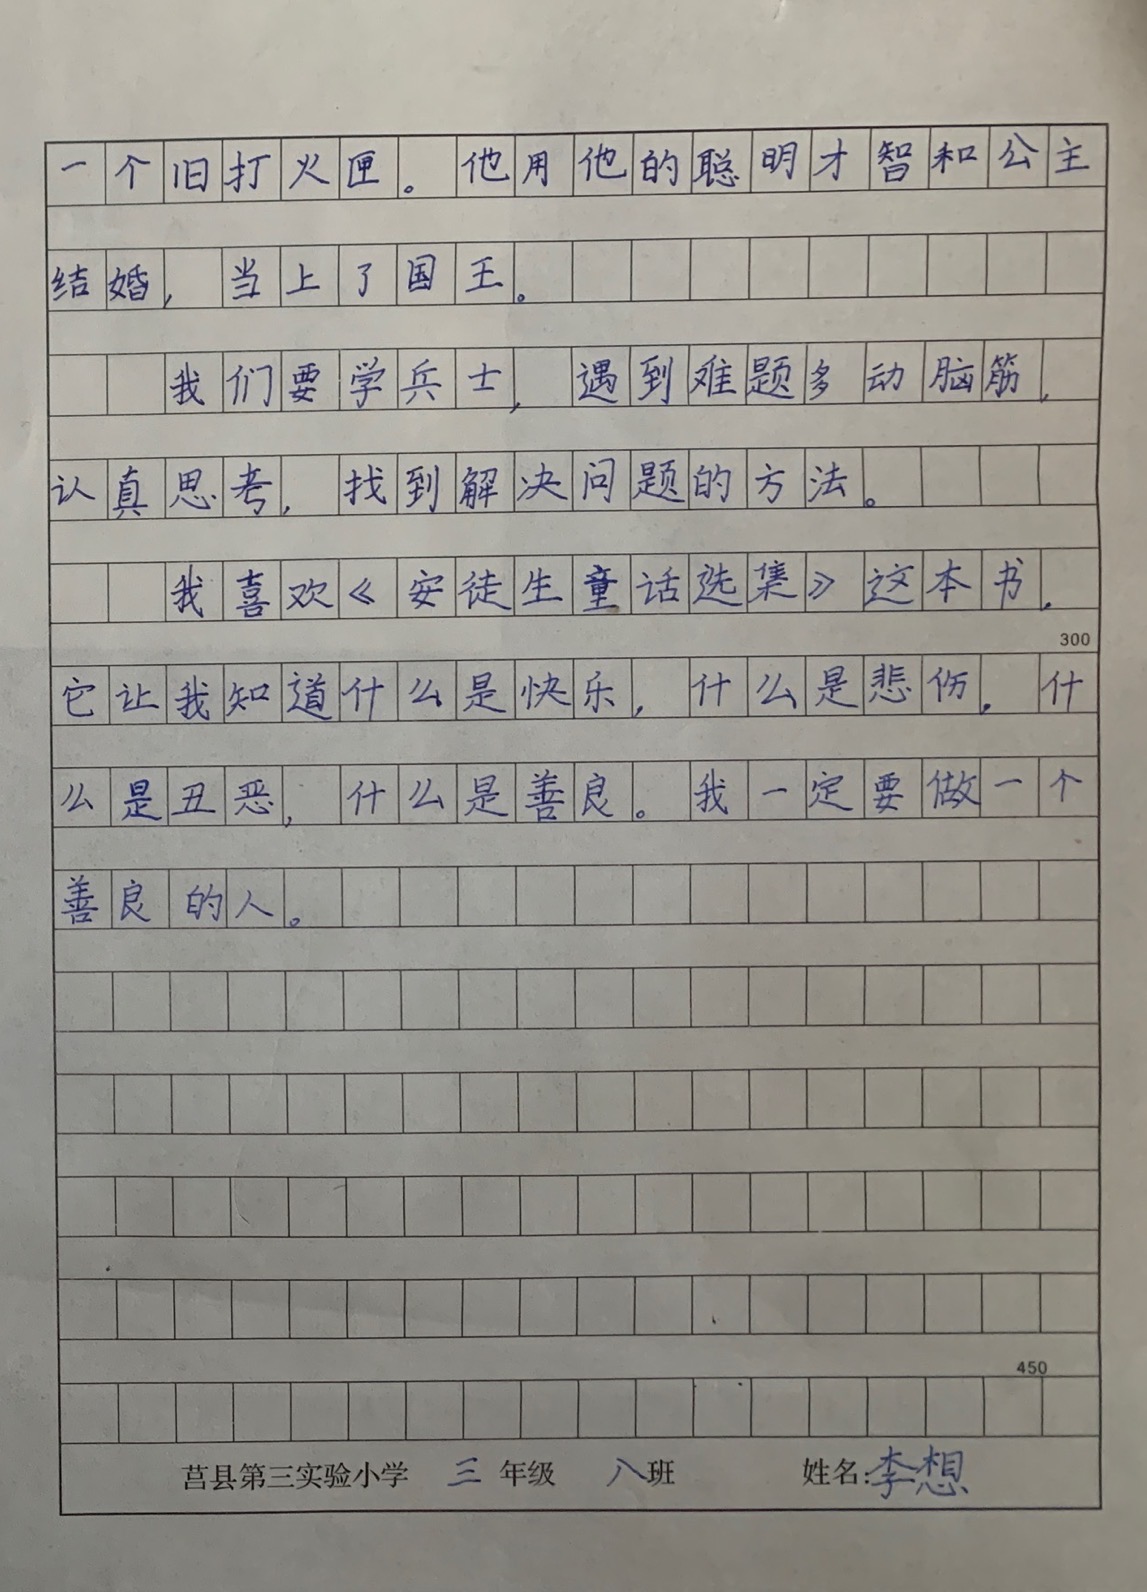 一个旧打火匣。他用他的聪明才智和公主
结婚,当上了国王。
我们要学兵士,遇到难题多动脑筋,
认真思考,找到解决问题的方法。
我喜欢《安徒生童话选集》这本书,
300
它让我知道什么是快乐,什么是悲伤,什
么是丑恶,什么是善良。我一定要做一个
善良的人。
450
莒县第三实验小学 三 年级 八班 姓名:李想